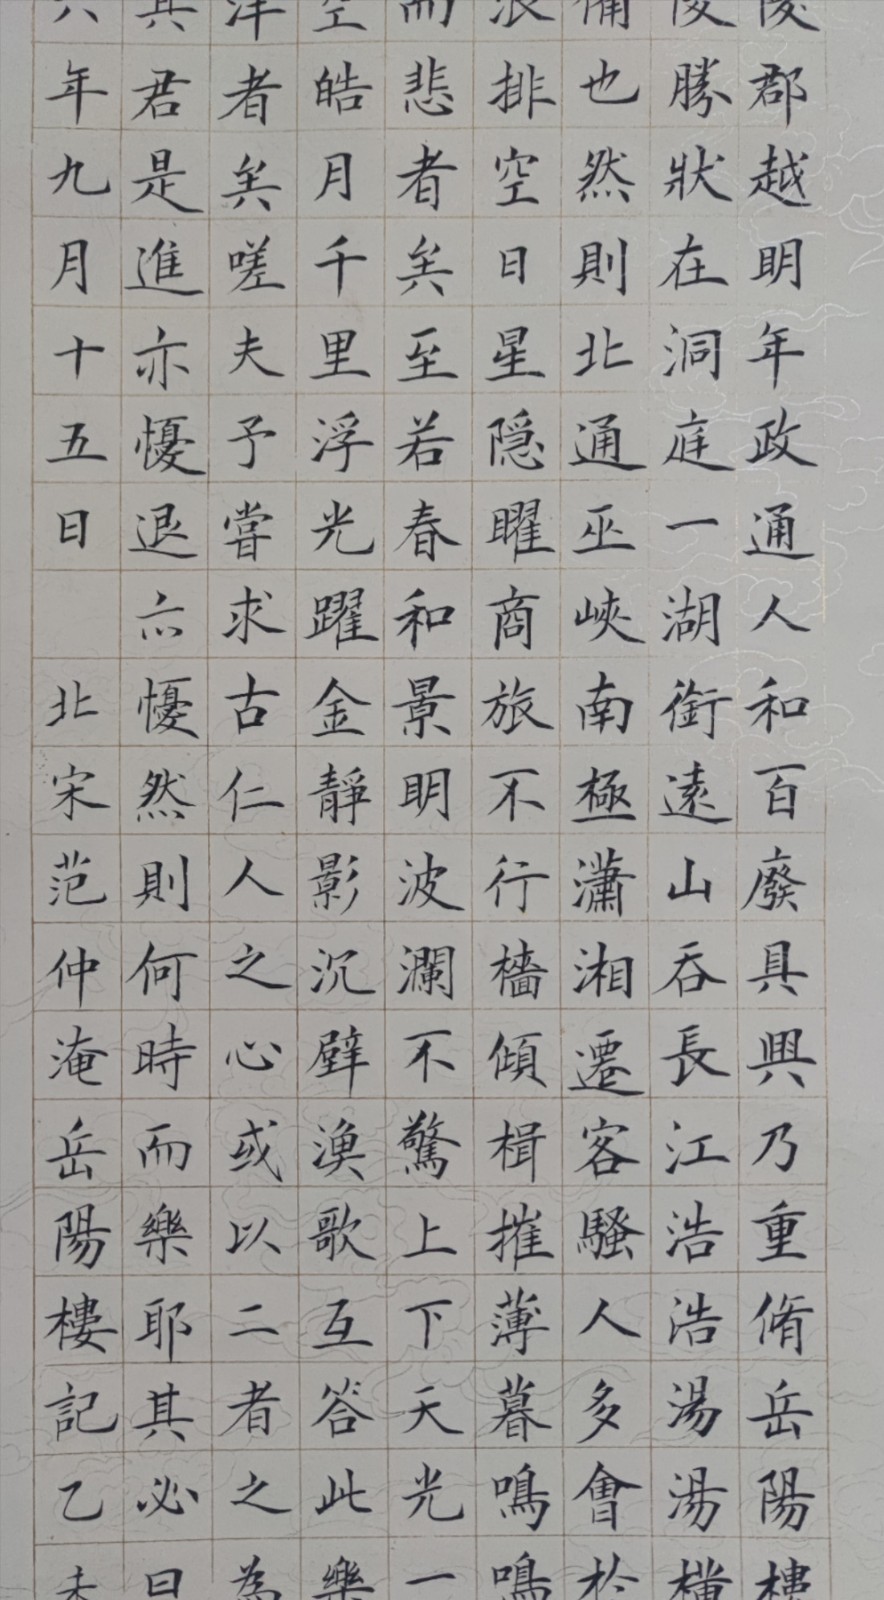 陵郡越明年政通人和百廢具興乃重脩岳陽樓
陵勝狀在洞庭一湖銜遠山吞長江浩浩湯湯橫
備也然則北通巫峽南極瀟湘遷客騷人多會於
浪排空日星隠曜商旅不行檣傾楫摧薄暮鳴鳴
而悲者矣至若春和景明波瀾不驚上下天光一
空皓月千里浮光躍金靜影沉壁漁歌互答此樂
洋者矣嗟夫予嘗求古仁人之心或以二者之為
其君是進亦懮退亦懮然則何時而樂耶其必曰
六年九月十五日 北宋范仲淹岳陽樓記乙未